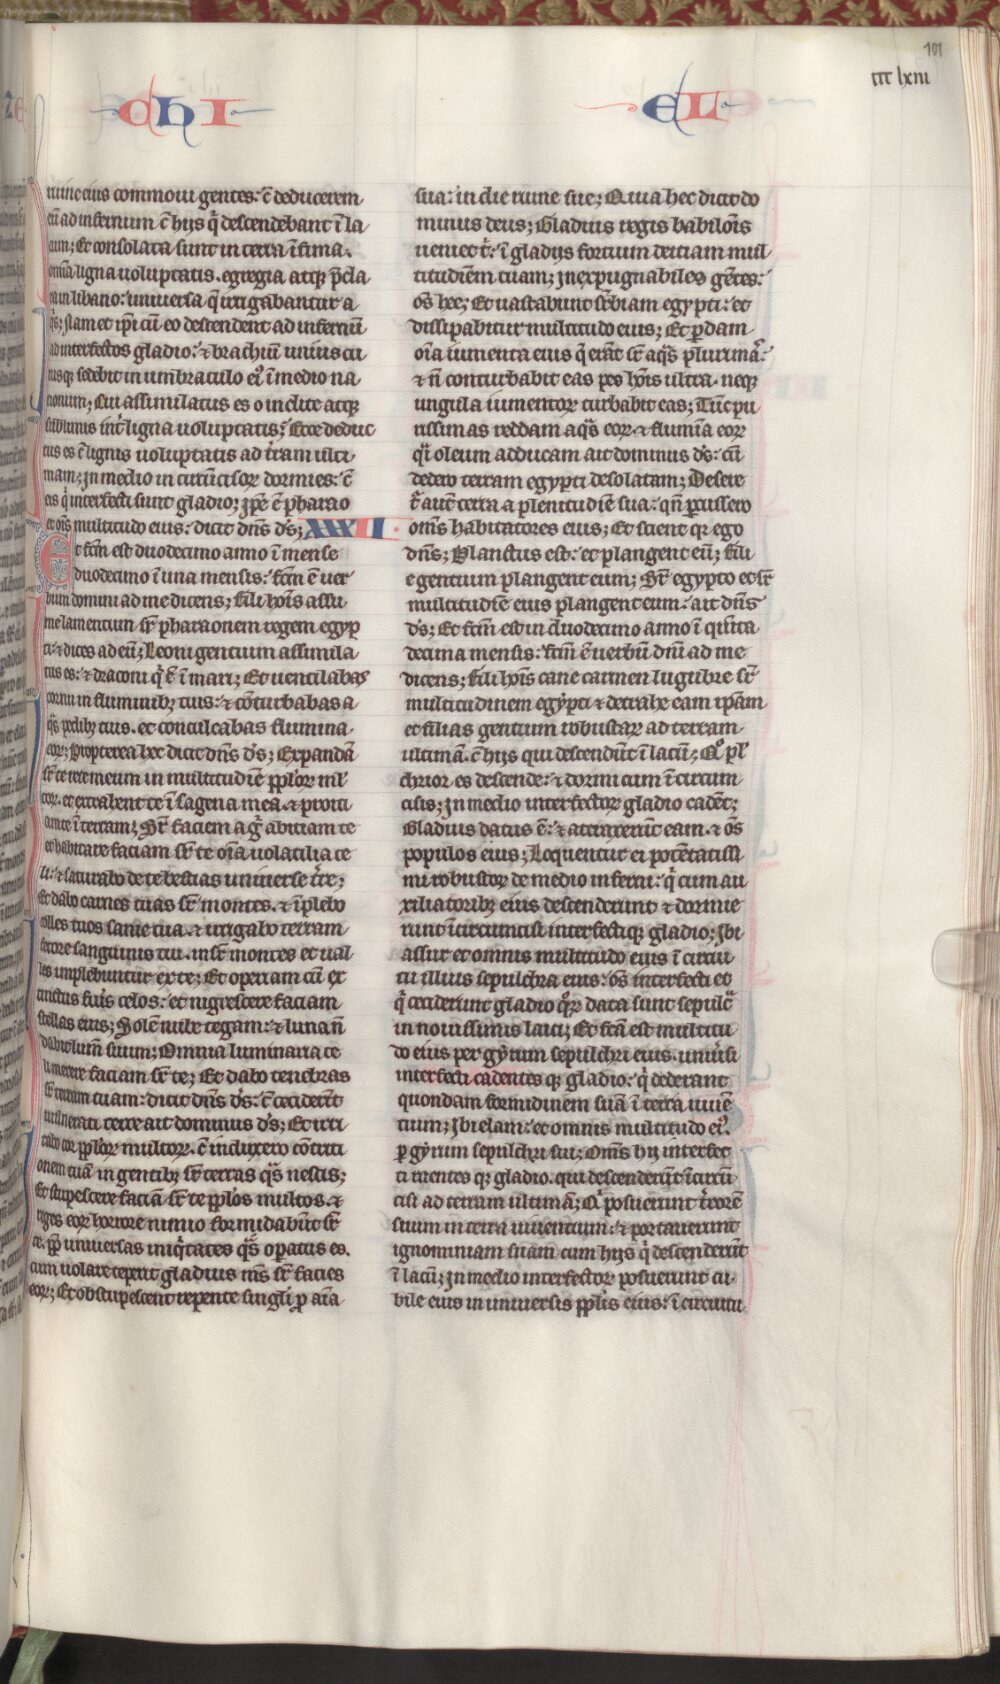 101
ccc lxiii
CHI
EL
ruine eius commoui gentes: c̄ deducerem
eū ad infernum c̄ hijs q̄ descendebant ī la
cum; Et consolata sunt in terra īfima.
omīa ligna uoluptatis. egregia atq; p̄cla
ra in libano: uniuersa q̄ irrigabantur a
q̄s; Nam et ip̄i cū eo descendent ad infernū
ad interfectos gladio: & brachiū uniuscu
iusq; sedebit in umbraculo eiꝰ ī medio na
tionum; Cui assimilatus es o inclite atq;
sublimis int̄ ligna uoluptatis; Ecce deduc
tus es c̄ lignis uoluptatis ad t̄ram ulti
mam; In medio in circūcisoꝝ dormies: c̄
eis q̄ interfecti sunt gladio; Ip̄e ē pharao
et oīs multitudo eius: dicit dn̄s d̄s; XXXII
Et fc̄m est duodecimo anno ī mense
duodecimo ī una mensis: fc̄m ē uer
bum domini ad me dicens; Fili hoīs assu
me lamentum sr̄ pharaonem regem egyp
ti: & dices ad eū; Leoni gentium assimila
tus es: & draconi q̄ ē ī mari; Et uentilabas
cornu in fluminibꝫ tuis: & cōturbabas a
q̄s pedibꝫ tuis. et conculcabas flumina
eoꝝ; Propterea hec dicit dn̄s d̄s; Expandā
sr̄ te rete meum in multitudīe pp̄loꝝ ml̄
toꝝ. et extrahent te ī sagena mea. & proici
am te ī terram; Sr̄ faciem agͥ abiciam te
et habitare faciam sr̄ te oīa uolatilia ce
li: & saturabo de te bestias uniuerse t̄re;
Et dabo carnes tuas sr̄ montes. & īplebo
colles tuos sanie tua. & irrigabo terram
fetore sanguinis tui. insr̄ montes et ual
les implebuntur ex te; Et operiam cū ex
tinctus fuis̄ celos: et nigrescere faciam
stellas eius; Solē nube tegam: & luna n̄
dabit lumē suum; Omnia luminaria ce
li merere faciam sr̄ te; Et dabo tenebras
sr̄ terram tuam: dicit dn̄s d̄s: c̄ ceciderīt
uulnerati terre ait dominus d̄s; Et irri
tabo cor pp̄loꝝ multoꝝ. c̄ induxero cōtriti
onem tuā in gentibꝫ sr̄ terras q̄s nescis;
Et stupescere faciā sr̄ te pp̄los multos. &
reges eoꝝ horrore nimio formidabūt sr̄
te. pp̄ uniuersas iniq̄tates q̄s opatus es.
cum uolare ceperit gladius m̄s sr̄ facies
eoꝝ; Et obstupescent repente singli p aīa
sua: in die ruine sue; Quia hec dicit do
minus deus; Gladius regis babilōis
ueniet t̄: ī gladijs fortium deiciam mul
titudīem tuam; Inexpugnabiles gētes:
oēs hee; Et uastabunt supbiam egypti: et
dissipabitur multitudo eius; Et pdam
oīa iumenta eius q̄ erāt sr̄ aq̄s plurimas:
& n̄ conturbabit eas pes hoīs ultra. neq;
ungula iumentoꝝ turbabit eas; Tūc pu
rissimas reddam aq̄s eoꝝ. & flumīa eoꝝ
qͣi oleum adducam ait dominus d̄s: cū
dedero terram egypti desolatam; Desere
t̄ autē terra a plenitudīe sua: qn̄ pcussero
om̄s habitatores eius; Et scient qꝛ ego
dn̄s; Planctus est: et plangent eū; Fili
e gentium plangent eum; Sr̄ egypto et sr̄
multitudīe eius plangent eum: ait dn̄s
d̄s; Et fc̄m est in duodecimo anno ī quīta
decima mensis: fc̄m ē uerbū dn̄i ad me
dicens; Fili hoīs cane carmen lugubre sr̄
multitudinem egypti & detrahe eam ip̄am
et filias gentium robustaꝝ ad terram
ultimā. c̄ hijs qui descendūt ī lacū; Qͦ pul
chrior es descende: & dormi cum īcircum
cisis; In medio interfectoꝝ gladio cadēt;
Gladius datus ē: & attraxerūt eam. & oēs
populos eius; Loquentur ei potētissi
mi robustoꝝ de medio inferni: q̄ cum au
xiliatoribꝫ eius descenderunt & dormie
runt īcircumcisi interfectiq; gladio; Ibi
assur et omnis multitudo eius ī circui
tu illius sepulchra eius: oēs interfecti et
q̄ ceciderunt gladio qͦꝝ data sunt sepulcͣ
in nouissimis laci; Et fc̄a est multitu
do eius per gyrum sepulchri eius. uniūsi
interfecti cadentes q; gladio: q̄ dederant
quondam formidinem suā ī terra uiuē
tium; Ibi elam: et omnis multitudo eiꝰ.
p gyrum sepulchri sui; Om̄s hij interfec
ti ruentes q; gladio. qui descenderūt īcircū
cisi ad terram ultimā; Qͥ posuerunt t̄rorē
suum in terra uiuentium: & portauerunt
ignominiam suam cum hijs q̄ descenderūt
ī lacū; In medio interfectoꝝ posuerunt cu
bile eius in uniuersis pp̄lis eius: ī circuitu